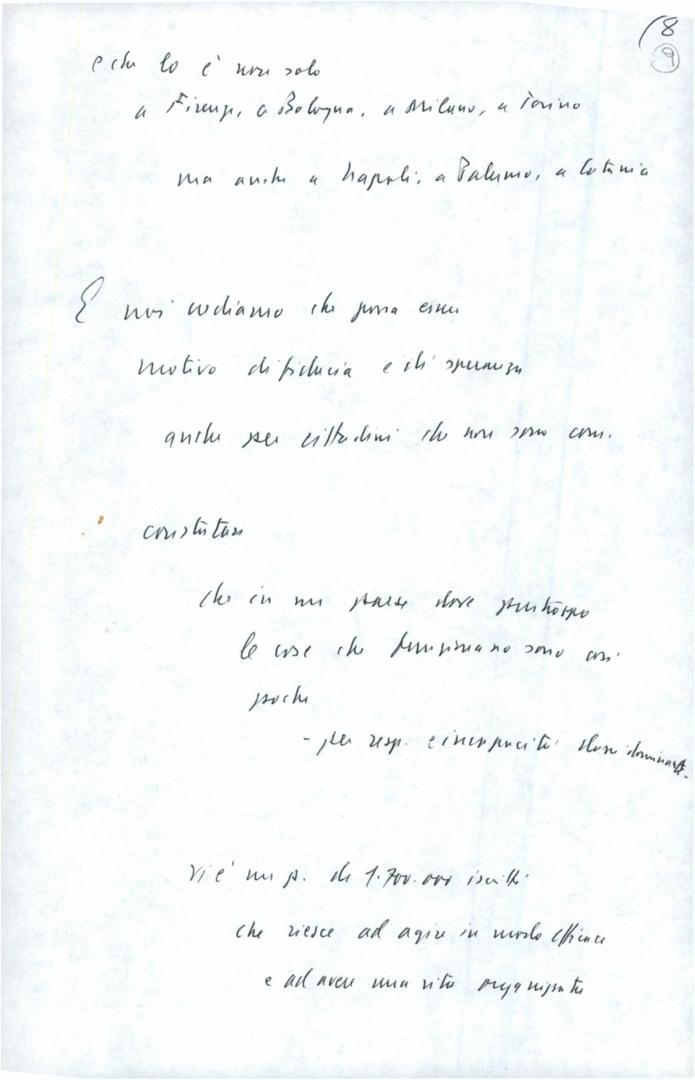 18
9
e che lo è non solo
a Firenze, a Bologna, a Milano, a Torino
ma anche a Napoli, a Palermo, a Catania
E noi crediamo che possa essere
motivo di fiducia e di speranza
anche per cittadini che non sono com.
constatare
che in un paese dove purtroppo
le cose che funzionano sono così
poche
- per resp. e incapacità classi dominanti -
vi è un p. di 1.700.000 iscritti
che riesce ad agire in modo efficace
e ad avere una vita organizzata